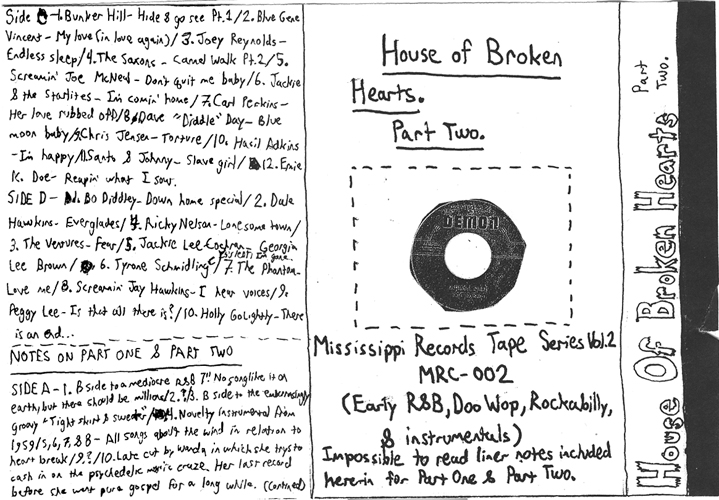 Side C - 1. Bunker Hill - Hide & go see Pt.1/2. Blue Gene
Vincent - My love (in love again)/3. Joey Reynolds -
Endless sleep/4. The Saxons - Camel Walk Pt.2/5.
Screamin' Joe McNeal - Don't quit me baby/6. Jackie
& the Starlites - I'm comin' home/7. Carl Perkins -
Her love rubbed off/8. Dave "Diddle" Day - Blue
moon baby/9. Chris Jensen - Torture/10. Hasil Adkins
- I'm happy/11. Santo & Johnny - Slave girl/12. Ernie
K. Doe - Reapin' what I sow.
SIDE D - 1. Bo Diddley - Down home special/2. Dale
Hawkins - Everglades/4. Ricky Nelson - Lonesome town/
3. The Ventures - Fear/5. Jackie Lee Cochran - Georgia
Lee Brown/6. Tyrone Schmidling - I'm gone/7. The Phantom -
Love me/8. Screamin' Jay Hawkins - I hear voices/9.
Peggy Lee - Is that all there is?/10. Holly GoLightly - There
is an end...
NOTES ON PART ONE & PART TWO
SIDE A - 1. B side to a mediocre R&B 7" No song like it on
earth, but there should be millions/2.?/3. B side to the embarrasingly
groovy "Tight skirt & sweater"/4. Novelty Instrumental Atom
1959/5,6,7,&8 - All songs about the wind in relation to
heart break/9.?/10. Late cut by Wanda in which she trys to
cash in on the psychedelic music craze. Her last record
before she went pure gospel for a long while. (Continued)
House of Broken
Hearts.
Part Two.
DEMON
Mississippi Records Tape Series Vol.2
MRC-002
(Early R&B, Doo Wop, Rockabilly,
& instrumentals)
Impossible to read liner notes included
herein for Part One & Part Two.
House Of Broken Hearts
Part
Two.